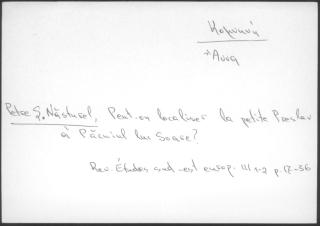 Κομνηνή
Άννα
Petre Ş. Năsturel, Peut-on localiser la petite Preslav
à Păcuiul lui Soare?
Rev. Études sud-est europ. III 1-2 p. 17-36